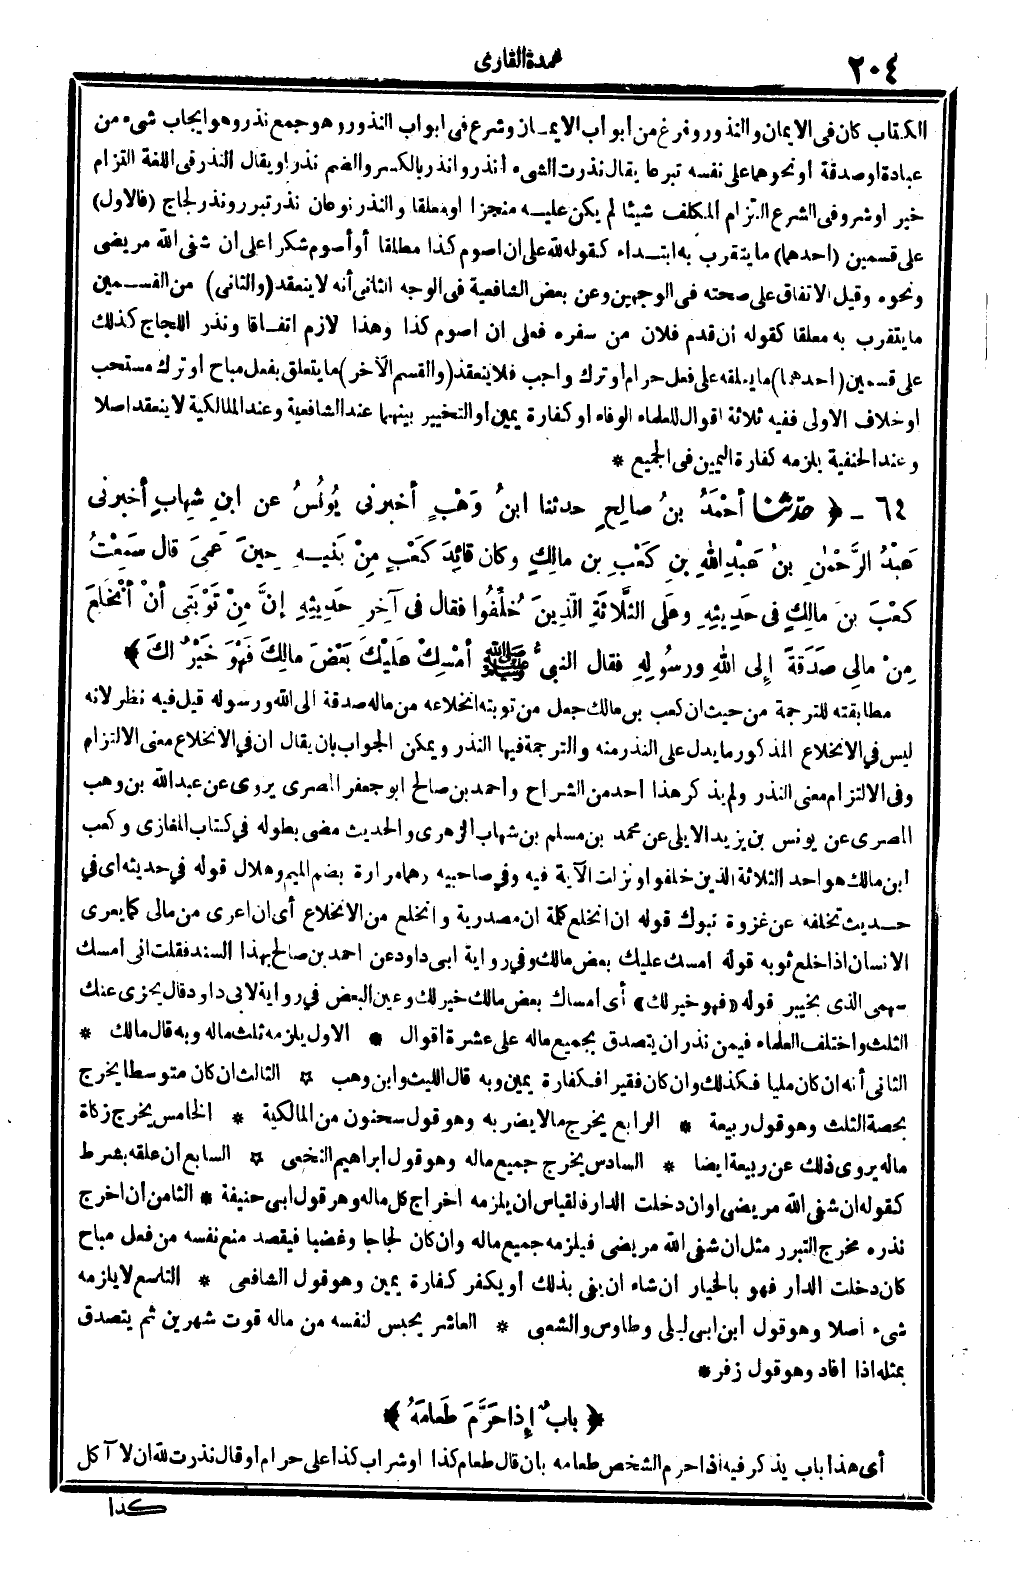 ٢٠٤
عمدة القارى
الكتاب كان فى الايمان والنذور وفرغ من أبواب الايمان وشرع فى ابواب النذور وهو جمع نذر وهو ايجاب شىء من
عبادة او صدقة أو نحوهما على نفسه تبرعا يقال نذرت الشىء أنذر وانذر بالكسر والضم نذرا ويقال النذر فى اللغة التزام
خير او شر وفى الشرع التزام المكلف شيئا لم يكن عليه منجزا او معلقا والنذر نوعان نذر تبرر ونذر لجاج (فالاول)
على قسمين (احدهما) ما يتقرب به ابتداء كقوله لله على ان اصوم كذا مطلقا أو أصوم شكرا على ان شفى الله مريضى
ونحوه وقيل الاتفاق على صحته فى الوجهين وعن بعض الشافعية فى الوجه الثانى أنه لا ينعقد (والثانى) من القسمين
ما يتقرب به معلقا كقوله أن قدم فلان من سفره فعلى ان اصوم كذا وهذا لازم اتفاقا ونذر اللجاج كذلك
على قسمين (احدهما) ما يعلقه على فعل حرام او ترك واجب فلا ينعقد (والقسم الآخر) ما يتعلق بفعل مباح او ترك مستحب
او خلاف الاولى ففيه ثلاثة اقوال للعلماء الوفاء او كفارة يمين او التخيير بينهما عند الشافعية وعند المالكية لا ينعقد اصلا
وعند الحنفية يلزمه كفارة اليمين فى الجميع *
٦٤ - ﴿ حدثنا أَحْمَدُ بنُ صالِحٍ حدثنا ابنُ وَهْبٍ أخبرنى يُونُسُ عن ابنِ شِهابٍ أخبرنى
عَبْدُ الرَّحْمٰنِ بنُ عَبْدِ اللهِ بنِ كَعْبِ بنِ مالِكٍ وكان قائِدَ كَعْبٍ مِنْ بَنِيهِ حِينَ عَمِىَ قال سَمِعْتُ
كَعْبَ بنَ مالِكٍ فى حَدِيثِهِ وعَلَى الثَّلَاثَةِ الَّذِينَ خُلِّفُوا فقال فى آخِرِ حَدِيثِهِ إنَّ مِنْ تَوْبَتِى أنْ أنْخَلِعَ
مِنْ مالِى صَدَقَةً إلى اللهِ ورسُولِهِ فقال النبىُّ ﷺ أمْسِكْ عَلَيْكَ بَعْضَ مالِكَ فَهْوَ خَيْرٌ لكَ ﴾
مطابقته للترجمة من حيث ان كعب بن مالك جعل من توبته انخلاعه من ماله صدقة الى الله ورسوله قيل فيه نظر لانه
ليس فى الانخلاع المذكور ما يدل على النذر منه والترجمة فيها النذر ويمكن الجواب بان يقال ان فى الانخلاع معنى الالتزام
وفى الالتزام معنى النذر ولم يذكر هذا احد من الشراح واحمد بن صالح ابو جعفر المصرى يروى عن عبد الله بن وهب
المصرى عن يونس بن يزيد الايلى عن محمد بن مسلم بن شهاب الزهرى والحديث مضى بطوله فى كتاب المغازى وكعب
ابن مالك هو احد الثلاثة الذين خلفوا ونزلت الآية فيه وفى صاحبيه وهما مرارة بضم الميم وهلال قوله فى حديثه اى فى
حديث تخلفه عن غزوة تبوك قوله ان انخلع كلمة ان مصدرية وانخلع من الانخلاع أى ان اعرى من مالى كما يعرى
الانسان اذا خلع ثوبه قوله امسك عليك بعض مالك وفى رواية ابى داود عن احمد بن صالح بهذا السند فقلت انى أمسك
سهمى الذى بخيبر قوله «فهو خير لك» أى امساك بعض مالك خير لك وعين البعض فى رواية لابى داود قال يجزى عنك
الثلث واختلف العلماء فيمن نذر ان يتصدق بجميع ماله على عشرة اقوال * الاول يلزمه ثلث ماله وبه قال مالك *
الثانى أنه ان كان مليا فكذلك وان كان فقيرا فكفارة يمين وبه قال الليث وابن وهب * الثالث ان كان متوسطا يخرج
بحصة الثلث وهو قول ربيعة * الرابع يخرج ما لا يضر به وهو قول سحنون من المالكية * الخامس يخرج زكاة
ماله يروى ذلك عن ربيعة ايضا * السادس يخرج جميع ماله وهو قول ابراهيم النخعى * السابع ان علقه بشرط
كقوله ان شفى الله مريضى او ان دخلت الدار فالقياس ان يلزمه اخراج كل ماله وهو قول ابى حنيفة * الثامن ان اخرج
نذره مخرج التبرر مثل ان شفى الله مريضى فيلزمه جميع ماله وان كان لجاجا وغضبا فيقصد منع نفسه من فعل مباح
كان دخلت الدار فهو بالخيار ان شاء ان يفى بذلك أو يكفر كفارة يمين وهو قول الشافعى * التاسع لا يلزمه
شىء أصلا وهو قول ابن ابى ليلى وطاوس والشعبى * العاشر يحبس لنفسه من ماله قوت شهرين ثم يتصدق
بمثله اذا افاد وهو قول زفر *
﴿ بابٌ إذَا حَرَّمَ طَعَامَهُ ﴾
أى هذا باب يذكر فيه اذا حرم الشخص طعامه بان قال طعام كذا او شراب كذا على حرام او قال نذرت لله ان لا آكل
كذا